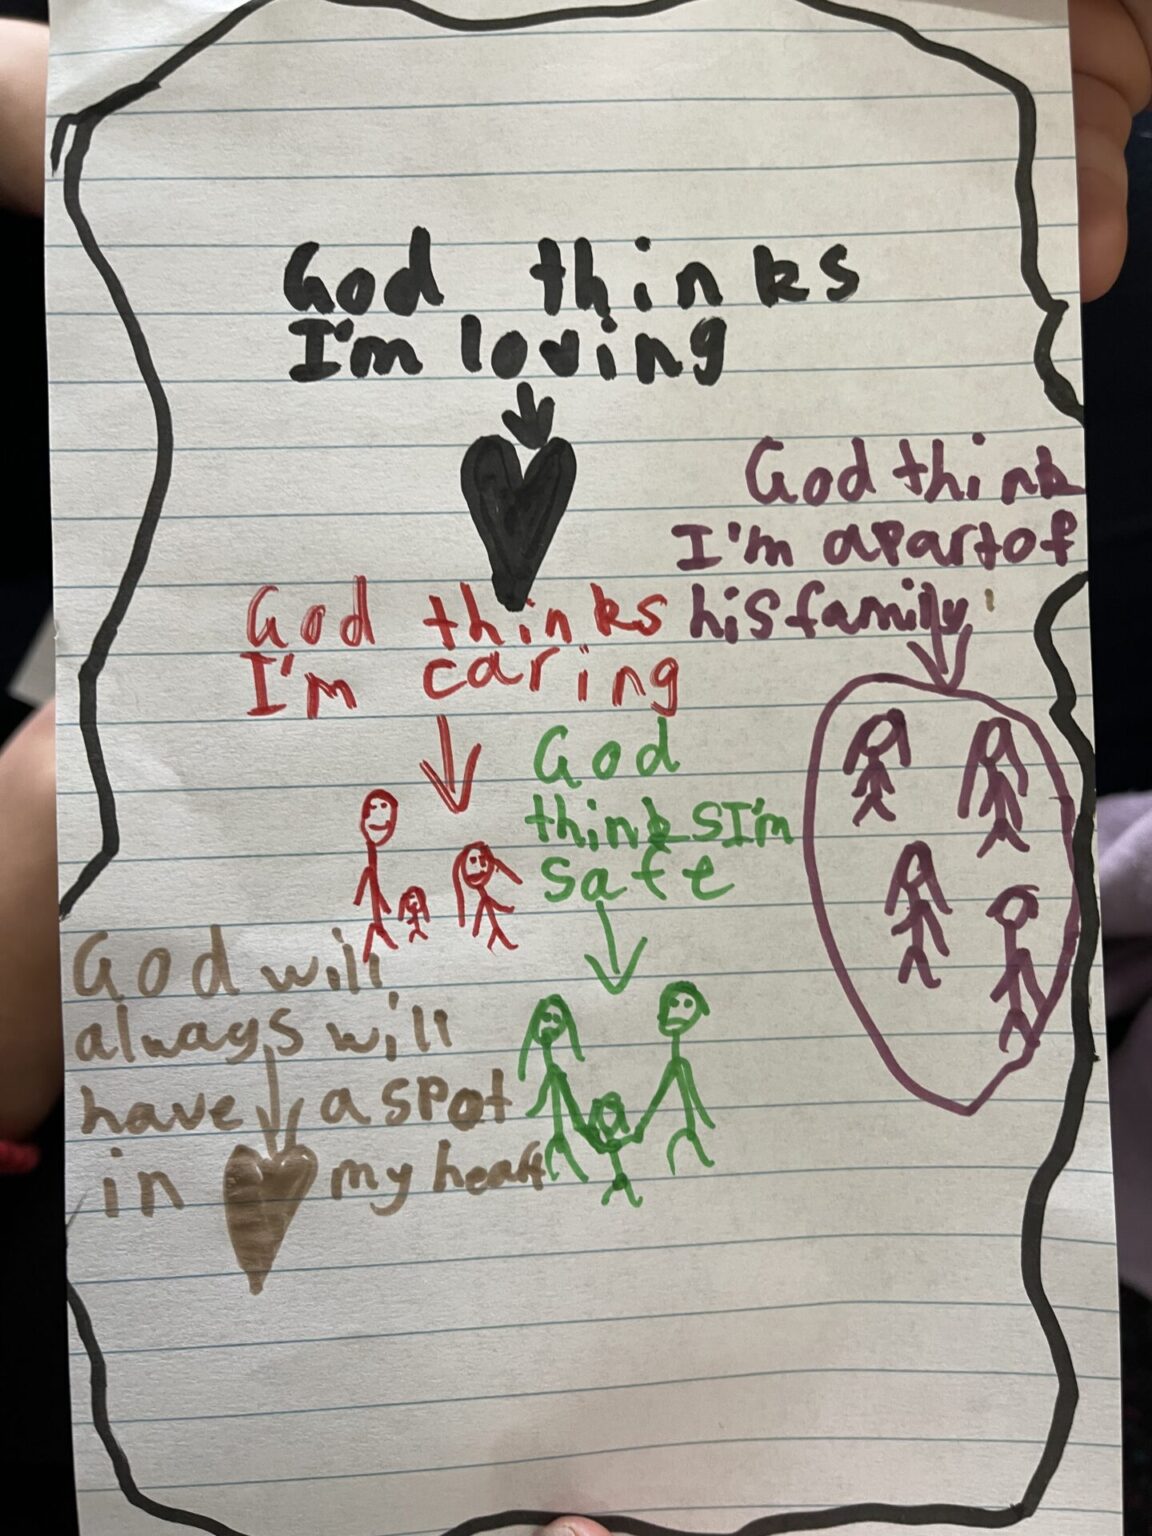 God thinks
I'm loving
God think
I'm apart of
his family
God thinks
I'm caring
God
thinksI'm
safe
God will
always will
have a spot
in my heart